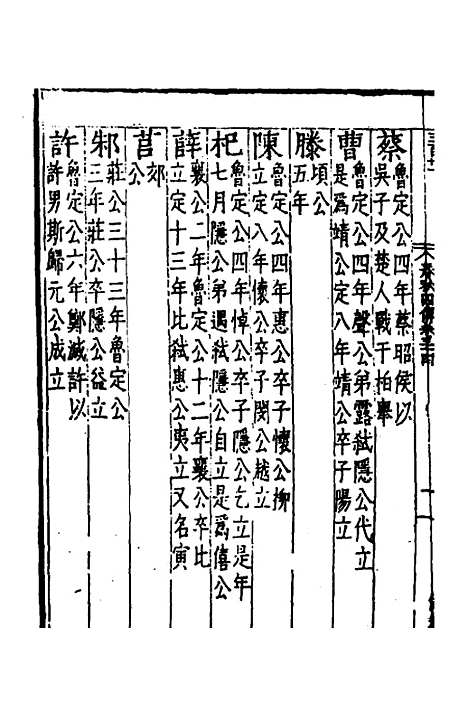 蔡
魯定公四年蔡昭侯以
吳子及楚人戰于柏舉
曹
魯定公四年聲公弟露弑隱公代立
是爲靖公定八年靖公卒子陽立
滕
頃公
五年
陳
魯定公四年惠公卒子懷公柳
立定八年懷公卒子閔公越立
杞
魯定公四年悼公卒子隱公乞立是年
七月隱公弟遇弑隱公自立是爲僖公
薛
襄公二年魯定公十二年襄公卒比
立定十三年比弑惠公夷立又名寅
莒
郊
公
邾
莊公三十三年魯定公
三年莊公卒隱公益立
許
魯定公六年鄭滅許以
許男斯歸元公成立